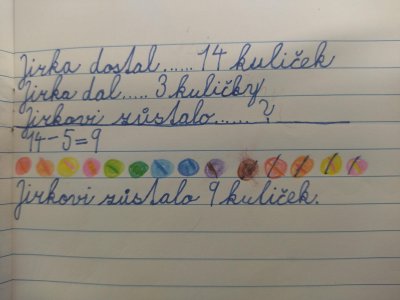 Jirka dostal......14 kuliček
Jirka dal.....3 kuličky
Jirkovi zůstalo......?
14-5=9
Jirkovi zůstalo 9 kuliček.